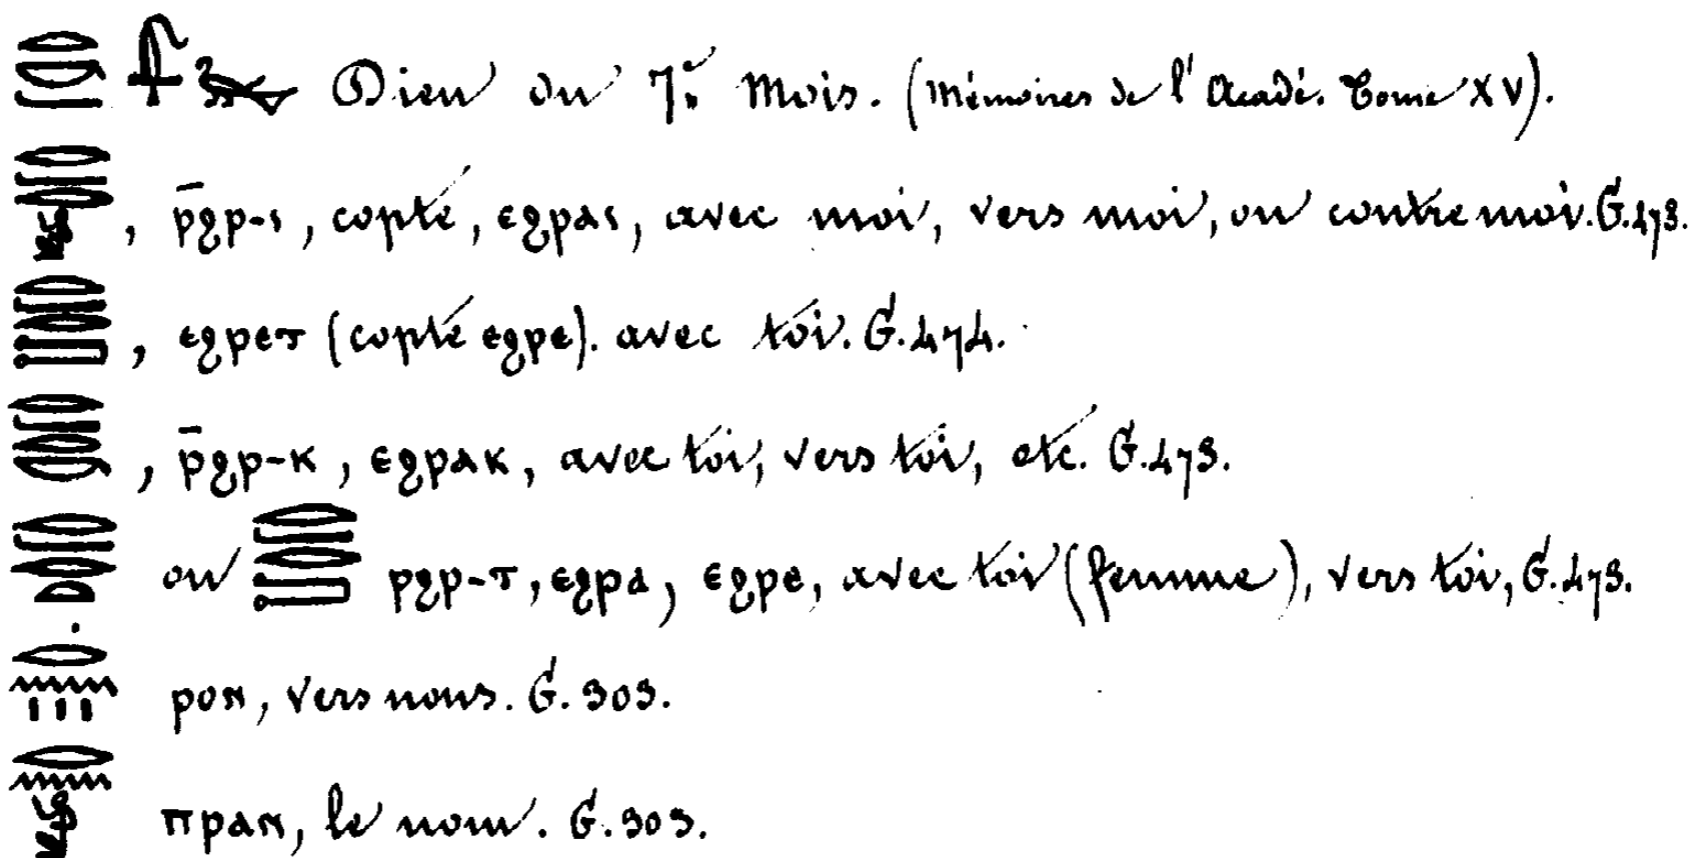 Dieu du 7.e mois. (Mémoires de l'Acadé. Tome XV).
, ⲣ̄ϩⲣ-ⲓ, copte, ⲉϩⲣⲁⲓ, avec moi, vers moi, ou contre moi. G. 473.
, ⲉϩⲣⲉⲧ (copte ⲉϩⲣⲉ). avec toi. G. 474.
, ⲣ̄ϩⲣ-ⲕ, ⲉϩⲣⲁⲕ, avec toi, vers toi, etc. G. 473.
ou ⲣϩⲣ-ⲧ, ⲉϩⲣⲁ, ⲉϩⲣⲉ, avec toi (femme), vers toi, G. 473.
ⲣⲟⲛ, vers nous. G. 303.
ⲡⲣⲁⲛ, le nom. G. 303.